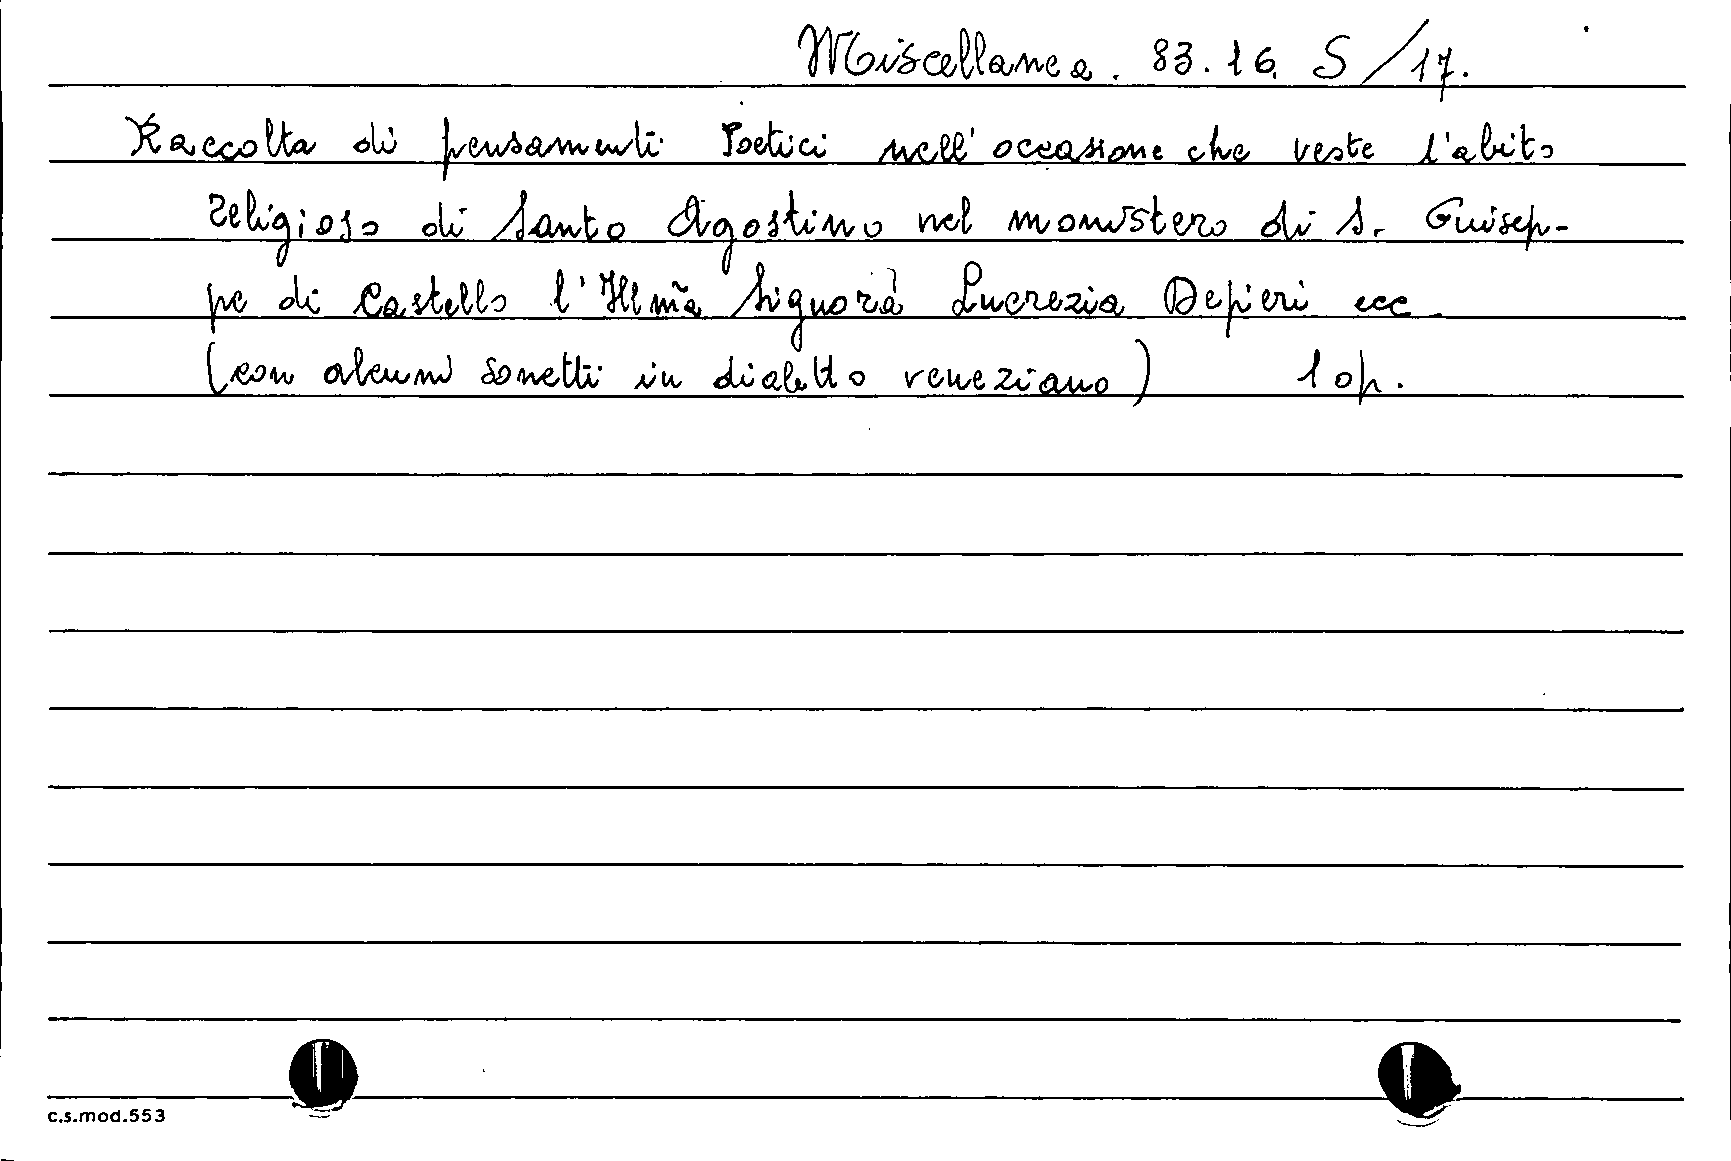 Miscellanea. 83. 16. S/17.
Raccolta di pensamenti Poetici nell'occasione che veste l'abito
religioso di Santo Agostino nel monistero di S. Guisep-
pe di Castello l'Illm̃a Signora Lucrezia Depieri ecc.
(con alcuni sonetti in dialetto veneziano) 1 op.
c.s.mod.553